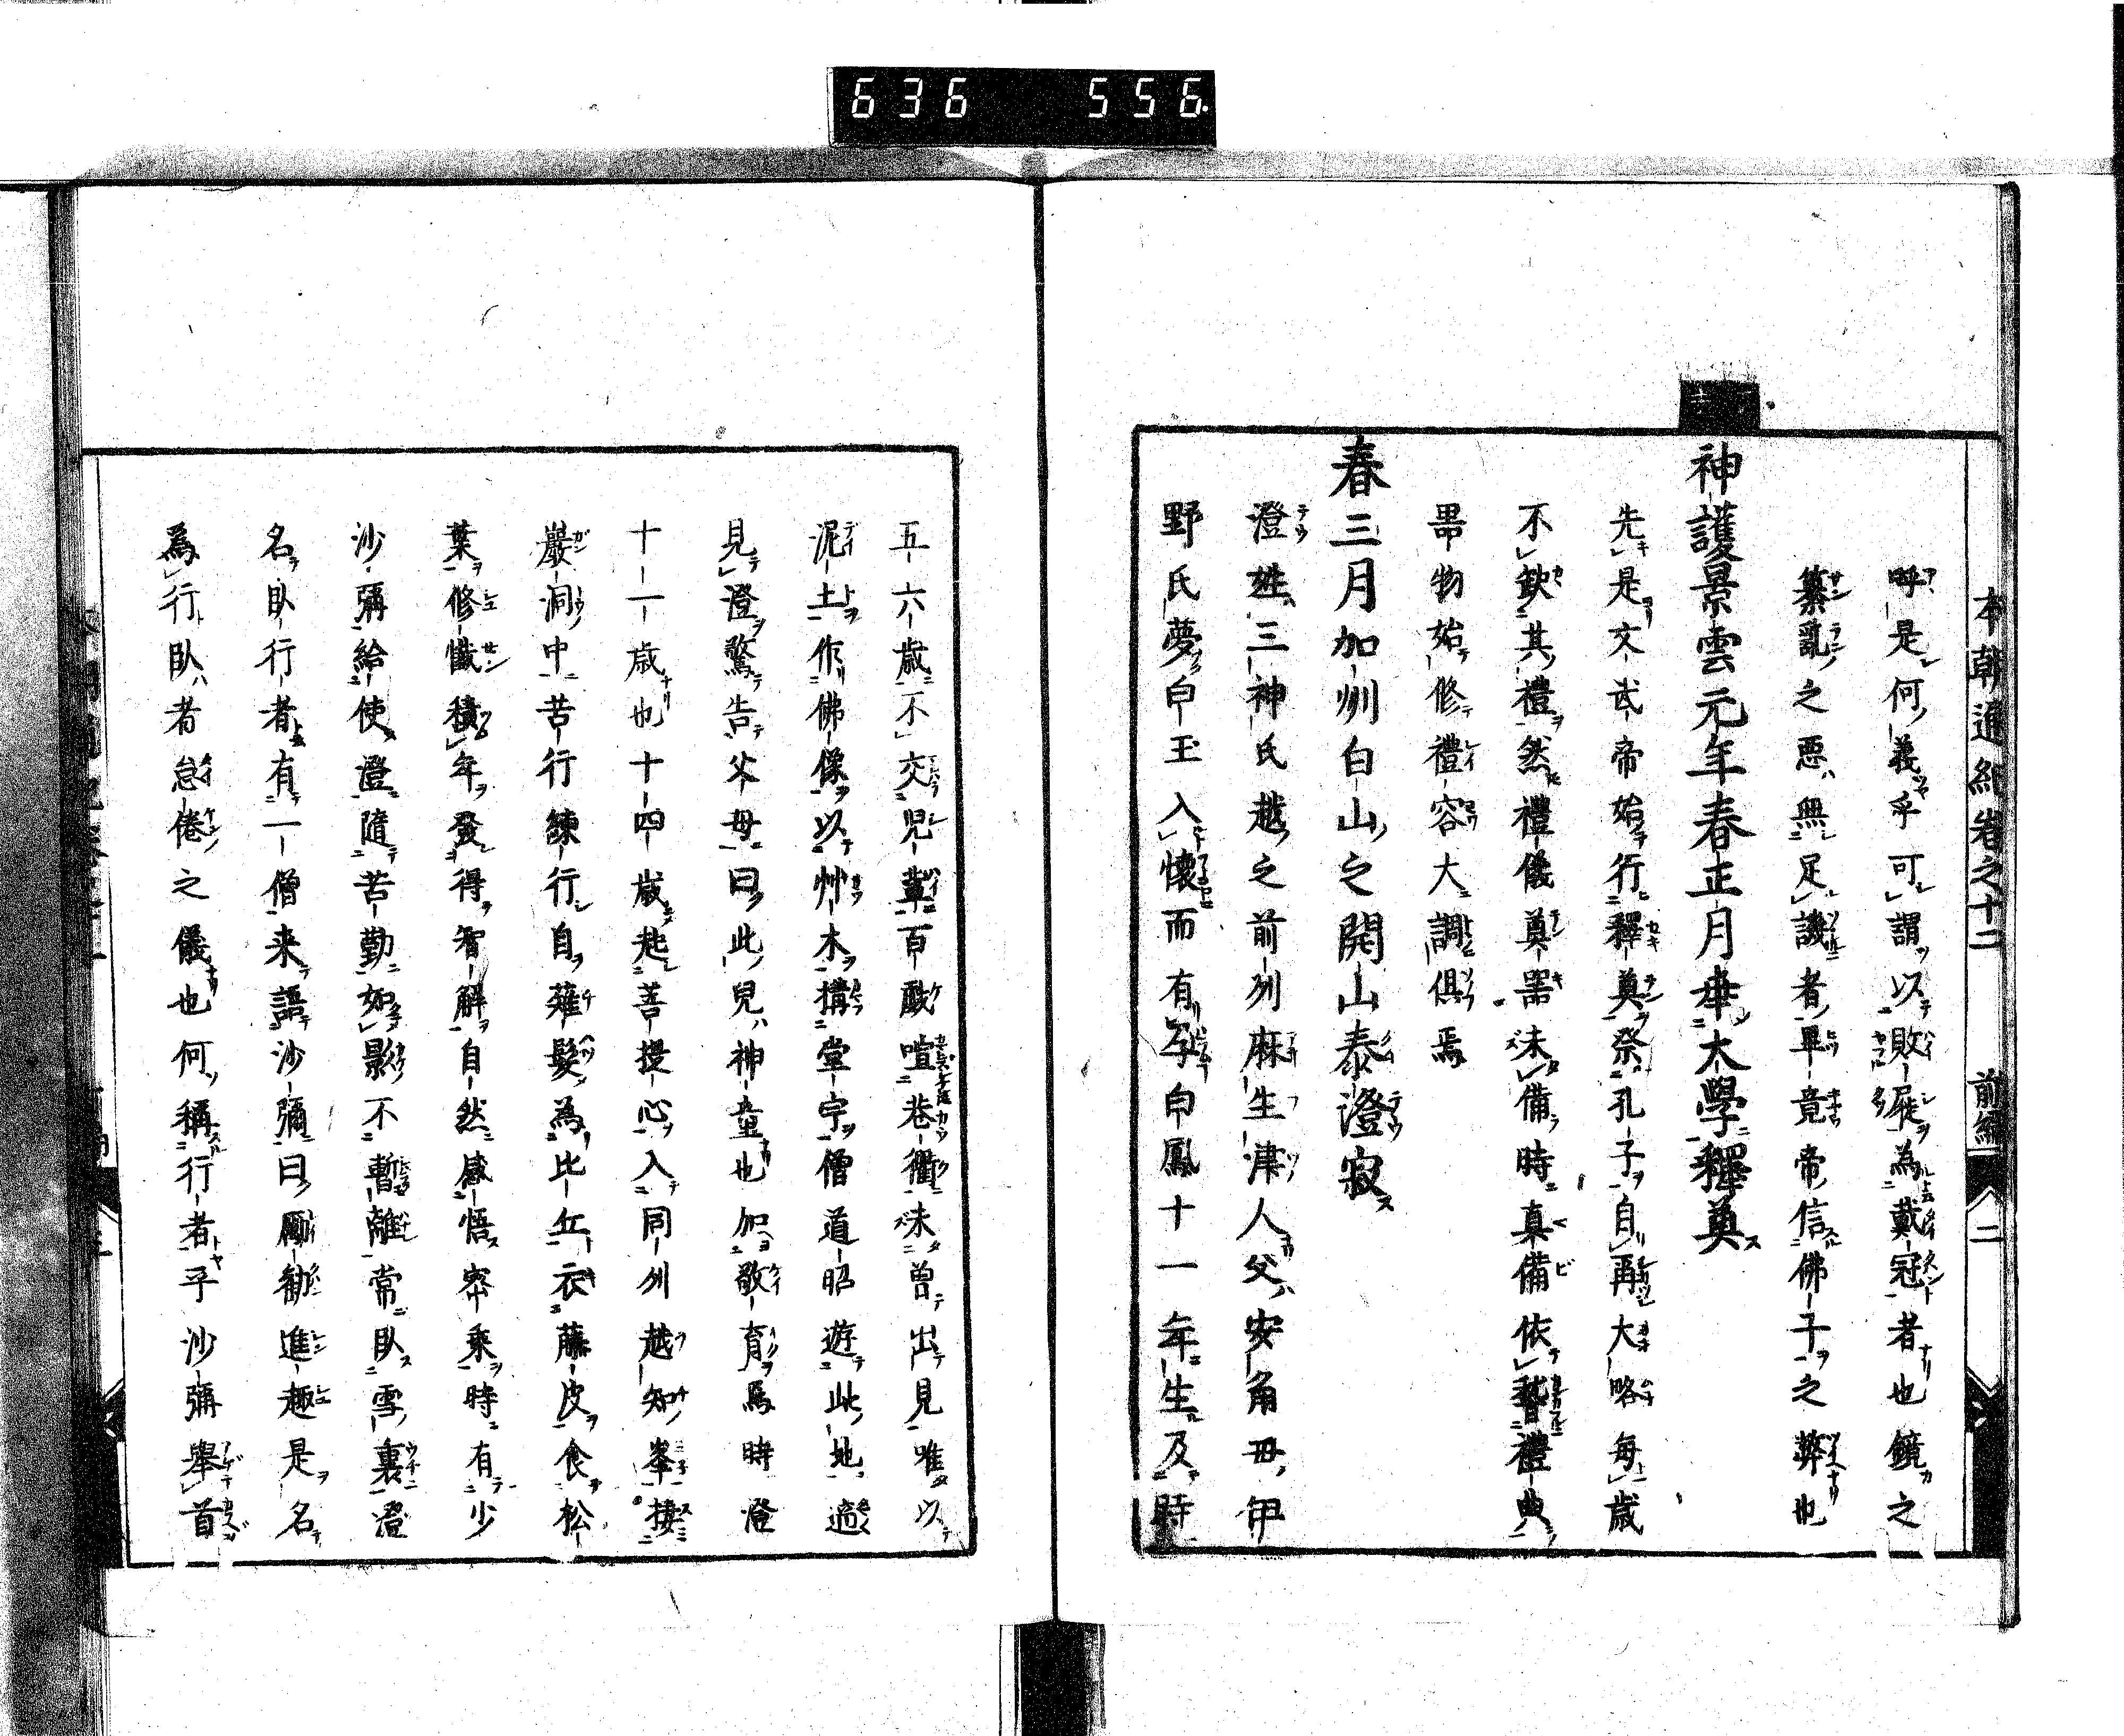 636 556.
本朝通紀卷之十二 前編 二
呼是何義乎可謂以敗屣為戴冠者也鏡之
纂亂之惡無足譏者畢竟帝信佛子之弊也
神護景雲元年春正月幸大學釋奠
先是文武帝始行釋奠祭孔子自再大略每歲
不欽其禮然禮儀奠噐未備時真備依稽禮典
噐物始修禮容大調俱焉
春三月加州白山之開山泰澄寂
澄姓三神氏越之前州麻生津人父安角母伊
野氏夢白玉入懷而有孕白鳳十一年生及時
五六歲不交兒輩百戲喧巷衢未曾出見唯以
泥土作佛像以艸木搆堂宇僧道昭遊此地適
見澄驚告父母曰此兒神童也加敬育焉時澄
十一歲也十四歲起菩提心入同州越知峯棲
巖洞中苦行練行自薙髮為比丘衣藤皮食松
葉修懺積年發得智解自然感悟密乘時有少
沙彌給使澄隨苦勤如影不暫離常臥雪裏澄
名臥行者有一僧来語沙彌曰勵勧進趣是名
為行臥者怠倦之儀也何稱行者乎沙彌舉首